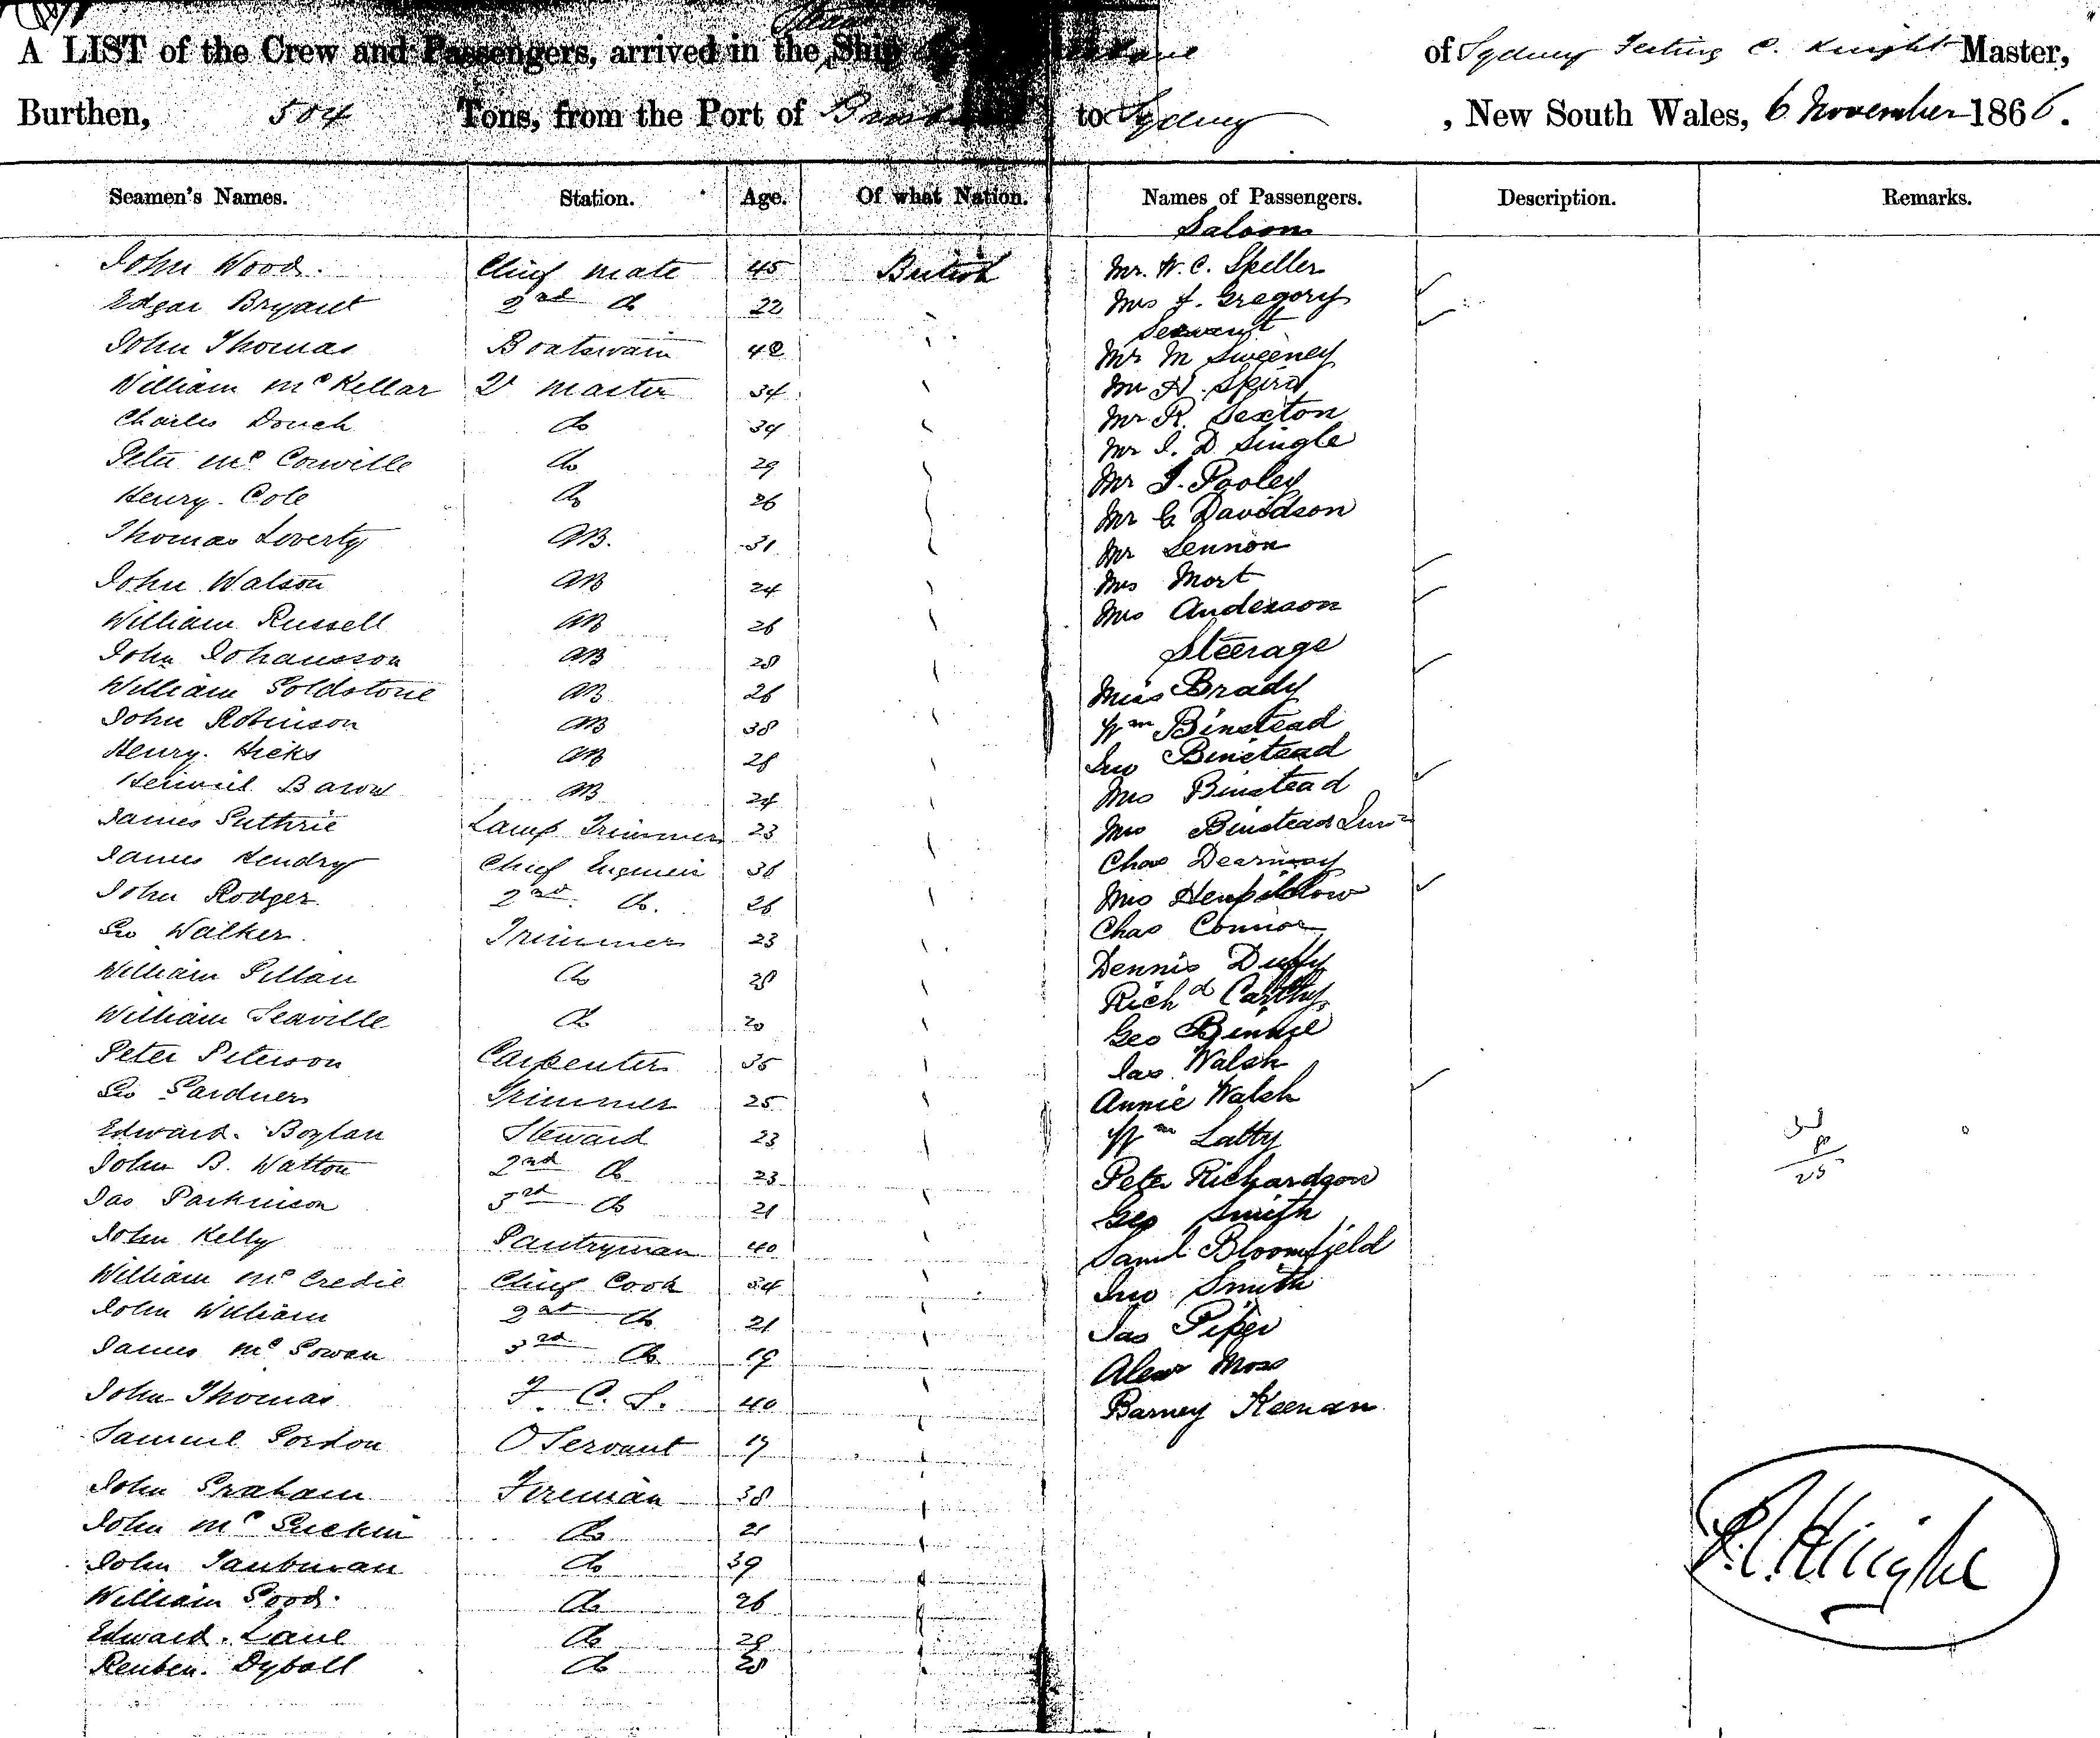 A LIST of the Crew and Passengers, arrived in the Steam Ship of Sydney C. Knight Master,
Burthen, 504 Tons, from the Port of to Sydney, New South Wales, 6 November 1866.
Seamen's Names. Station. Age. Of what Nation. Names of Passengers. Description. Remarks.
Saloon
John Wood. Chief Mate 45 British
Edgar Bryant 2nd do 22
John Thomas Boatswain 42
William McKellar Qr Master 34
Charles Douch do 34
Peter McConville do 29
Henry Cole do 26
Thomas Loverty AB. 31
John Watson AB 24
William Russell AB 26
John Johansson AB 28
William Goldstone AB 26
John Robinson AB 38
Henry Hicks AB 28
Barow AB 24
James Guthrie Lamp Trimmer 23
James Hendry Chief Engineer 36
John Rodger 2nd do. 26
Geo Walker Trimmer 23
William Pillau do 28
William Seaville do 20
Peter Peterson Carpenter 35
Geo Gardner Trimmer 25
Edward Boylan Steward 23
John B. Watton 2nd do 23
Jas Parkinson 3rd do 21
John Kelly Pantryman 40
William McCredie Chief Cook 34
John William 2nd do 21
James McGowan 3rd do 19
John Thomas F. C. S. 40
Samuel Gordon O Servant 17
John Graham Fireman 38
John McGuckin do 21
John Taubman do 39
William Good do 26
Edward Lane do 28
Reuben Dyball do 28
Mr. W. C. Speller
Mrs J. Gregory
Servant
Mr M Sweeney
Mr H. Spiro
Mr R. Sexton
Mr J. D. Single
Mr J. Pooley
Mr G Davidson
Mr Lennon
Mrs Mort
Mrs Anderson
Steerage
Miss Brady
Wm Binstead
Jno Binstead
Mrs Binstead
Mrs Binstead Junr
Chas Dearmay
Mrs
Chas Connor
Dennis Duffy
Richd Carthy
Geo Binnie
Jas Walsh
Annie Walsh
Wm Latty
Peter Richardson
Geo Smith
Saml Bloomfield
Jno Smith
Jas Piper
Alexr Moss
Barney Keenan
25